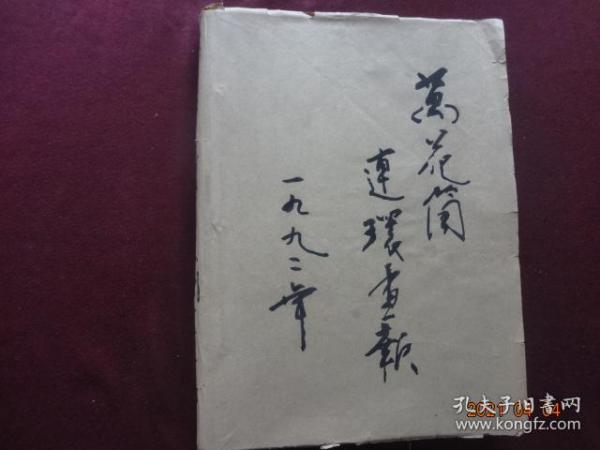 萬花筒
連環畫報
一九九二年
2021 04 04
孔夫子旧書网
www.kongfz.com